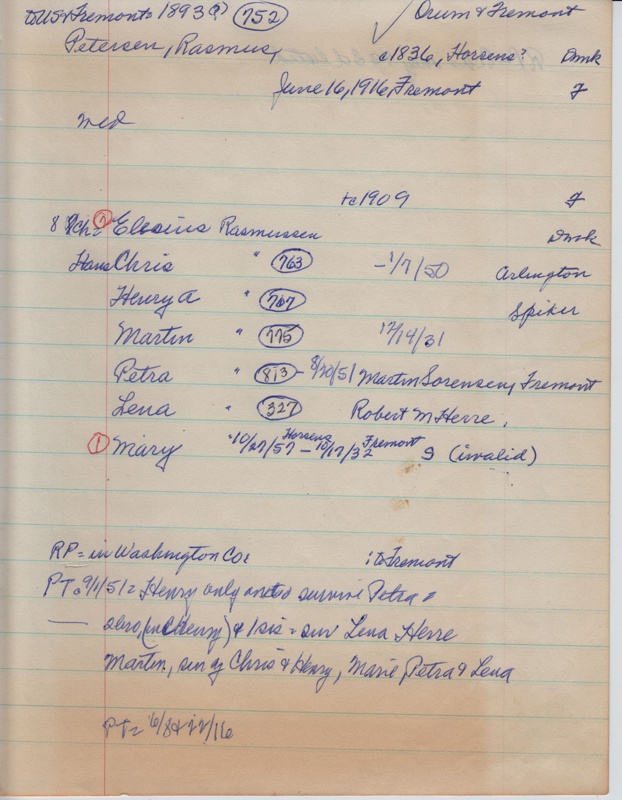 to US & Fremont = 1893(?) (752) ✓ Orum & Fremont
Petersen, Rasmus, c1836, Horsens? Dmk
June 16, 1916, Fremont F
med
c1909 F
8 ch = (2) Rasmussen Dmk
Hans Chris " (763) -1/7/50 Arlington
Henry A " (767) Spiker
Martin " (775) 12/14/31
Petra " (813) - 8/20/51 Martin Sorensen, Fremont
Lena " (327) Robert M Herre,
(1) Mary 10/27/57 Horsens - 10/17/32 Fremont S (invalid)
RP = in Washington Co; : to Fremont
PT = 9/1/51 = Henry only survive Petra =
(Henry) & 1 sis = sur Lena Herre
Martin, sur by Chris & Henry, Marie Petra & Lena
PT = 6/8 & 22/16